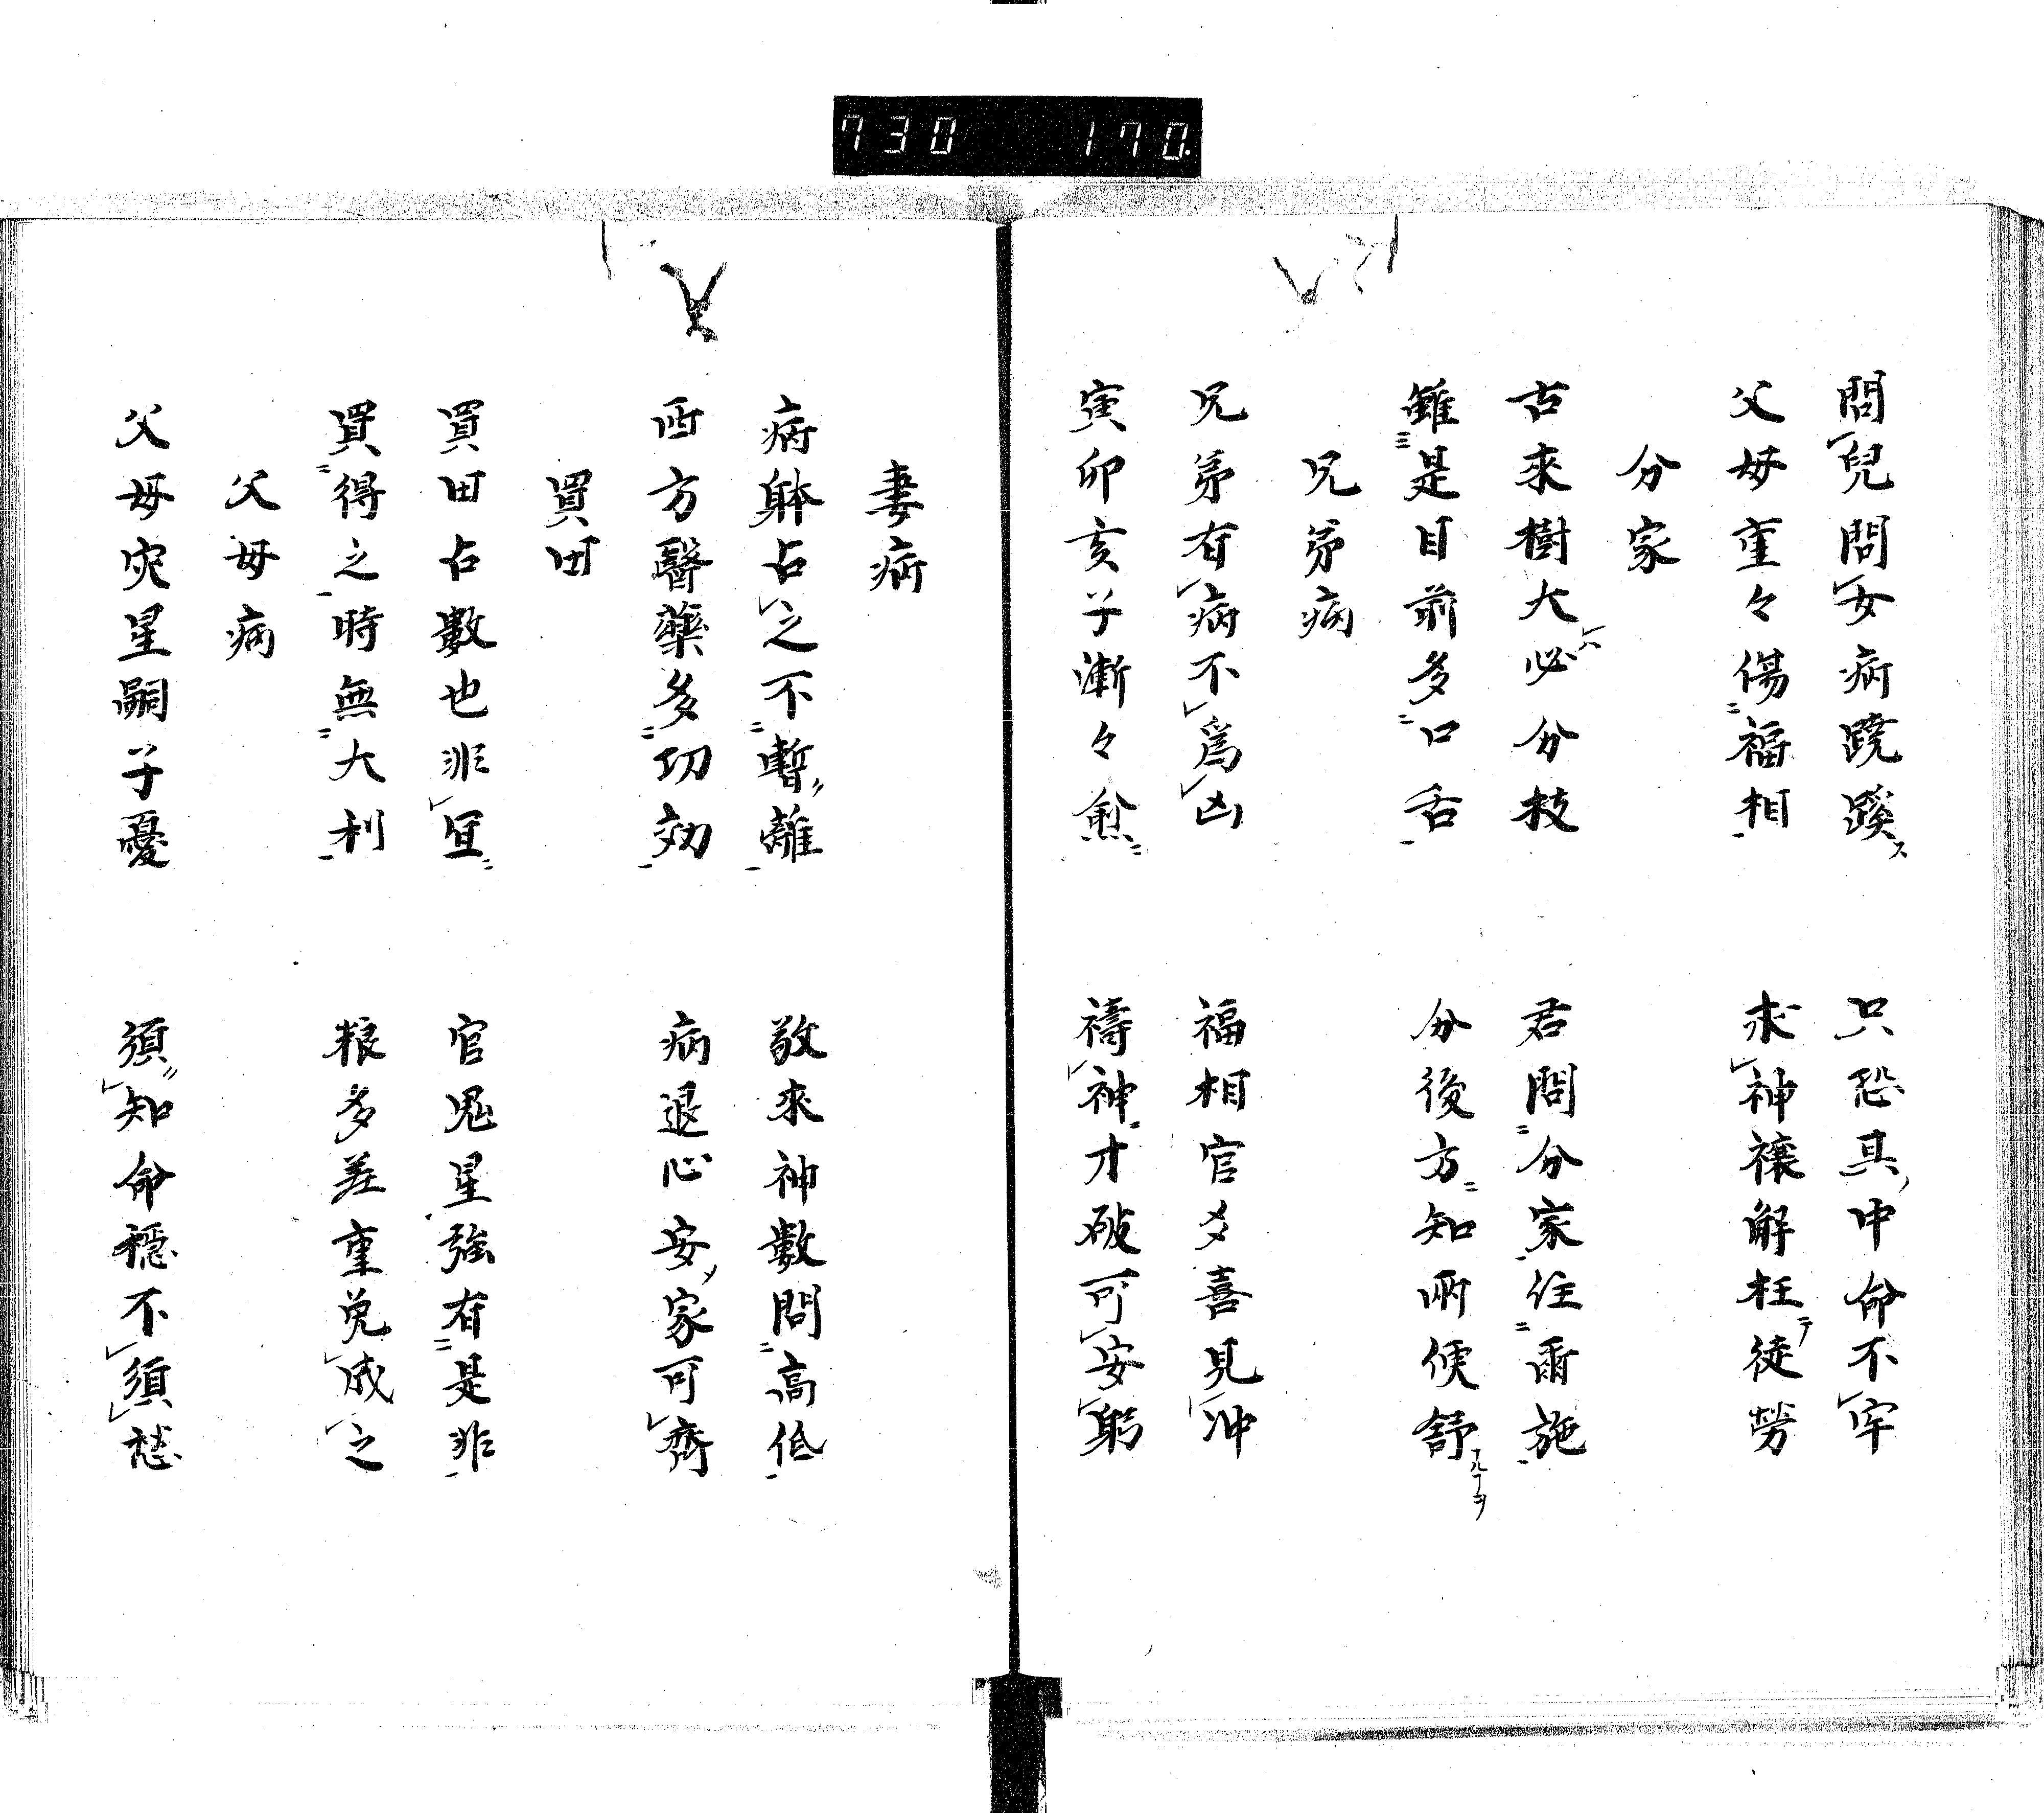 730 170.
問兒問女病蹺蹊 只恐其中命不牢
父母重々傷福相 求神禳解枉徒勞
分家
古來樹大必分枝 君問分家住爾施
雖是目前多口舌 分後方知兩便舒
兄弟病
兄弟有病不爲凶 福相官爻喜見冲
寅卯亥子漸々愈 禱神才破可安躬
妻病
病躰占之不暫離 敬來神數問高低
西方醫藥多功効 病退心安家可齊
買田
買田占數也非宜 官鬼星強有是非
買得之時無大利 粮多差重免成之
父母病
父母灾星嗣子憂 須知命穩不須愁